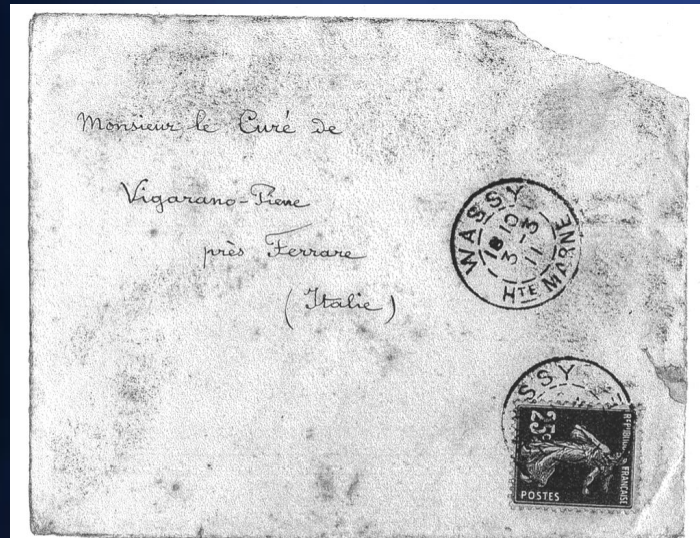 Monsieur le Curé de
Vigarano-Pieve
près Ferrare
(Italie)
WASSY
18 10
3-3
11
HTE MARNE
SSY
25c
REPUBLIQUE FRANÇAISE
POSTES